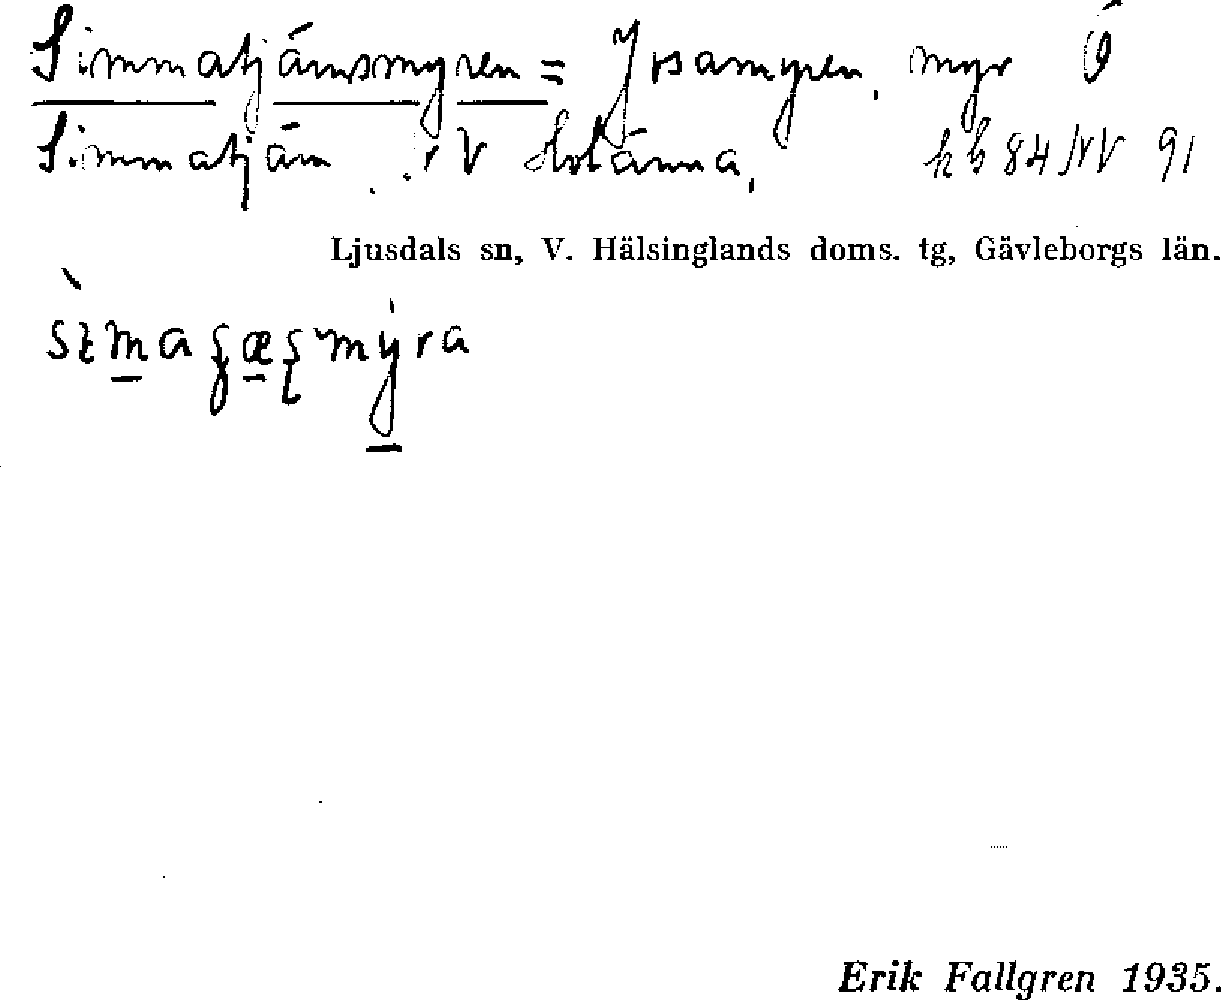 Simmatjärnsmyren = Yrsamyren, myr Ö
Simmatjärn V
kb 84 NV 91
Ljusdals sn, V. Hälsinglands doms. tg, Gävleborgs län.
Erik Fallgren 1935.